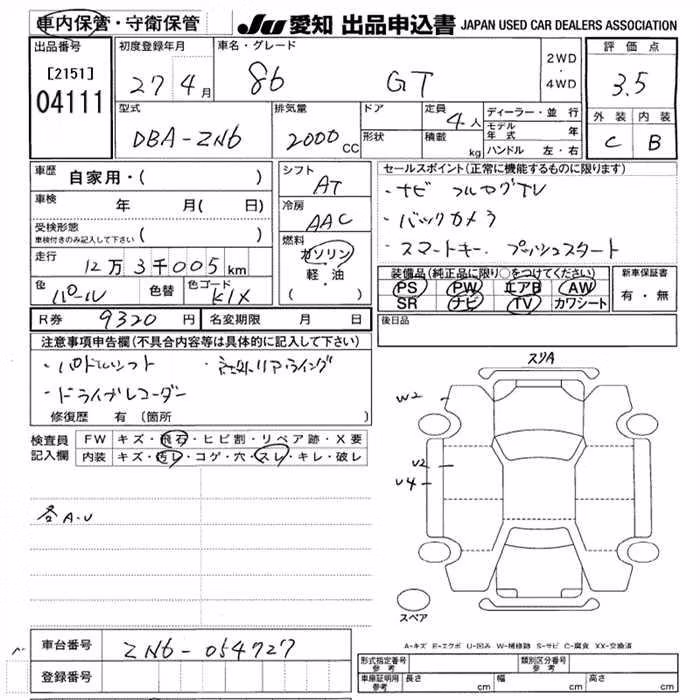 車内保管・守衛保管
JU 愛知 出品申込書 JAPAN USED CAR DEALERS ASSOCIATION
出品番号 初度登録年月 車名・グレード 評価点
[2151] 27 4月 86 GT 2WD・4WD 3.5
04111
型式 排気量 ドア 定員 4人 ディーラー・並行 外装 内装
DBA-ZN6 2000CC 形状 積載 kg モデル年式 年 C B
ハンドル 左・右
車歴 自家用・( ) シフト AT セールスポイント(正常に機能するものに限ります)
車検 年 月(日) 冷房 AAC ・ナビ フルセグTV
受検形態 車検付きのみ記入して下さい ( ) ・バックカメラ
走行 12万3千005km 燃料 ガソリン・軽・油( ) ・スマートキー. プッシュスタート
色 パール 色替 色コード K1X 装備品(純正品に限り○をつけてください) 新車保証書
PS PW エアB AW 有・無
SR ナビ TV カワシート
R券 9320円 名変期限 月 日 後日品
注意事項申告欄(不具合内容等は具体的に記入して下さい)
・パドルシフト ・社外リアウイング
・ドライブレコーダー
修復歴 有(箇所 )
検査員記入欄 FW キズ・飛石・ヒビ割・リペア跡・X要
内装 キズ・汚レ・コゲ・穴・スレ・キレ・破レ
スリA
W2
U2
U4
各A・U
スペア
A-キズ E-エクボ U-凹み W-補修跡 S-サビ C-腐食 XX-交換済
車台番号 ZN6-054727
登録番号
形式指定番号 参考 類別区分番号 参考
車庫証明用 参考 長さ cm 幅 cm 高さ cm